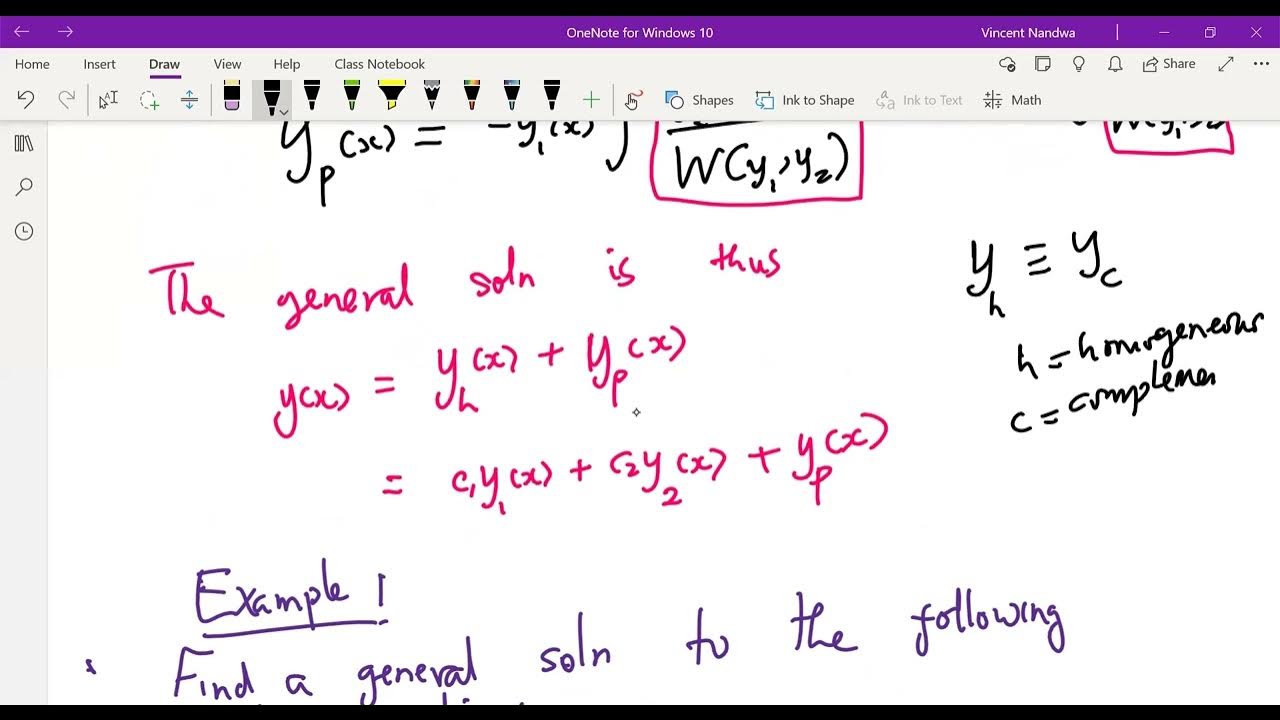 OneNote for Windows 10
Vincent Nandwa
Home Insert Draw View Help Class Notebook
Share
Shapes Ink to Shape Ink to Text Math
y_p(x) = -y_1(x) ∫
W(y_1, y_2)
The general soln is thus
y(x) = y_h(x) + y_p(x)
= c_1y_1(x) + c_2y_2(x) + y_p(x)
y_h ≡ y_c
h = homogeneous
c = complemen
Example 1
Find a general soln to the following